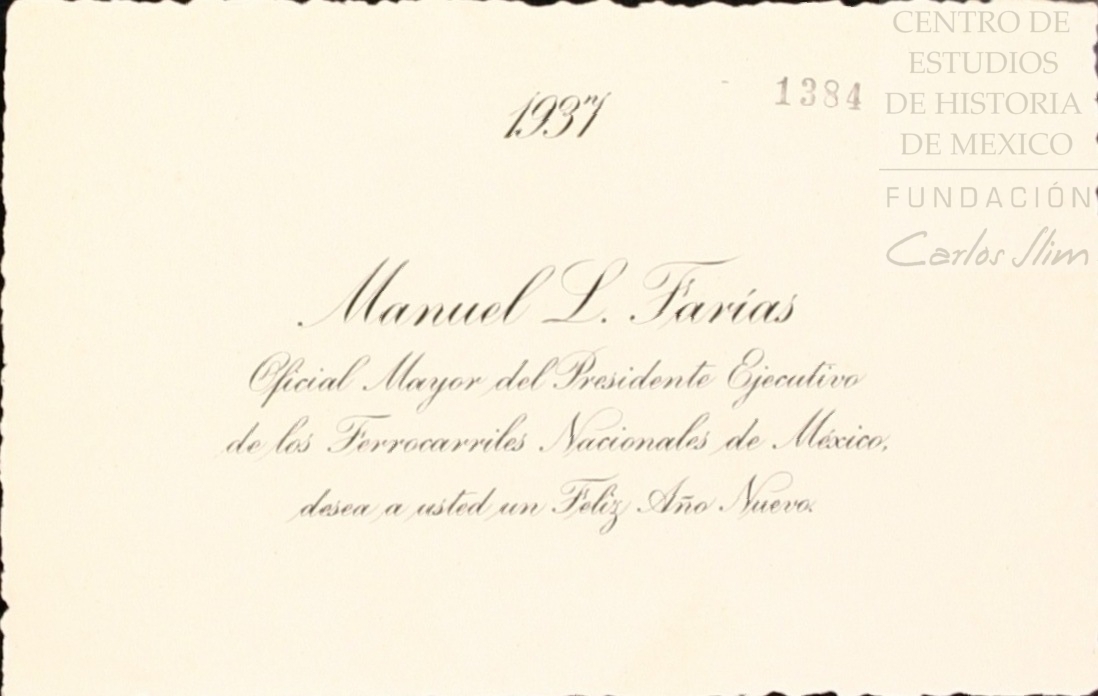 1937
1384
CENTRO DE
ESTUDIOS
DE HISTORIA
DE MEXICO
FUNDACIÓN
Carlos Slim
Manuel L. Farías
Oficial Mayor del Presidente Ejecutivo
de los Ferrocarriles Nacionales de México,
desea a usted un Feliz Año Nuevo.